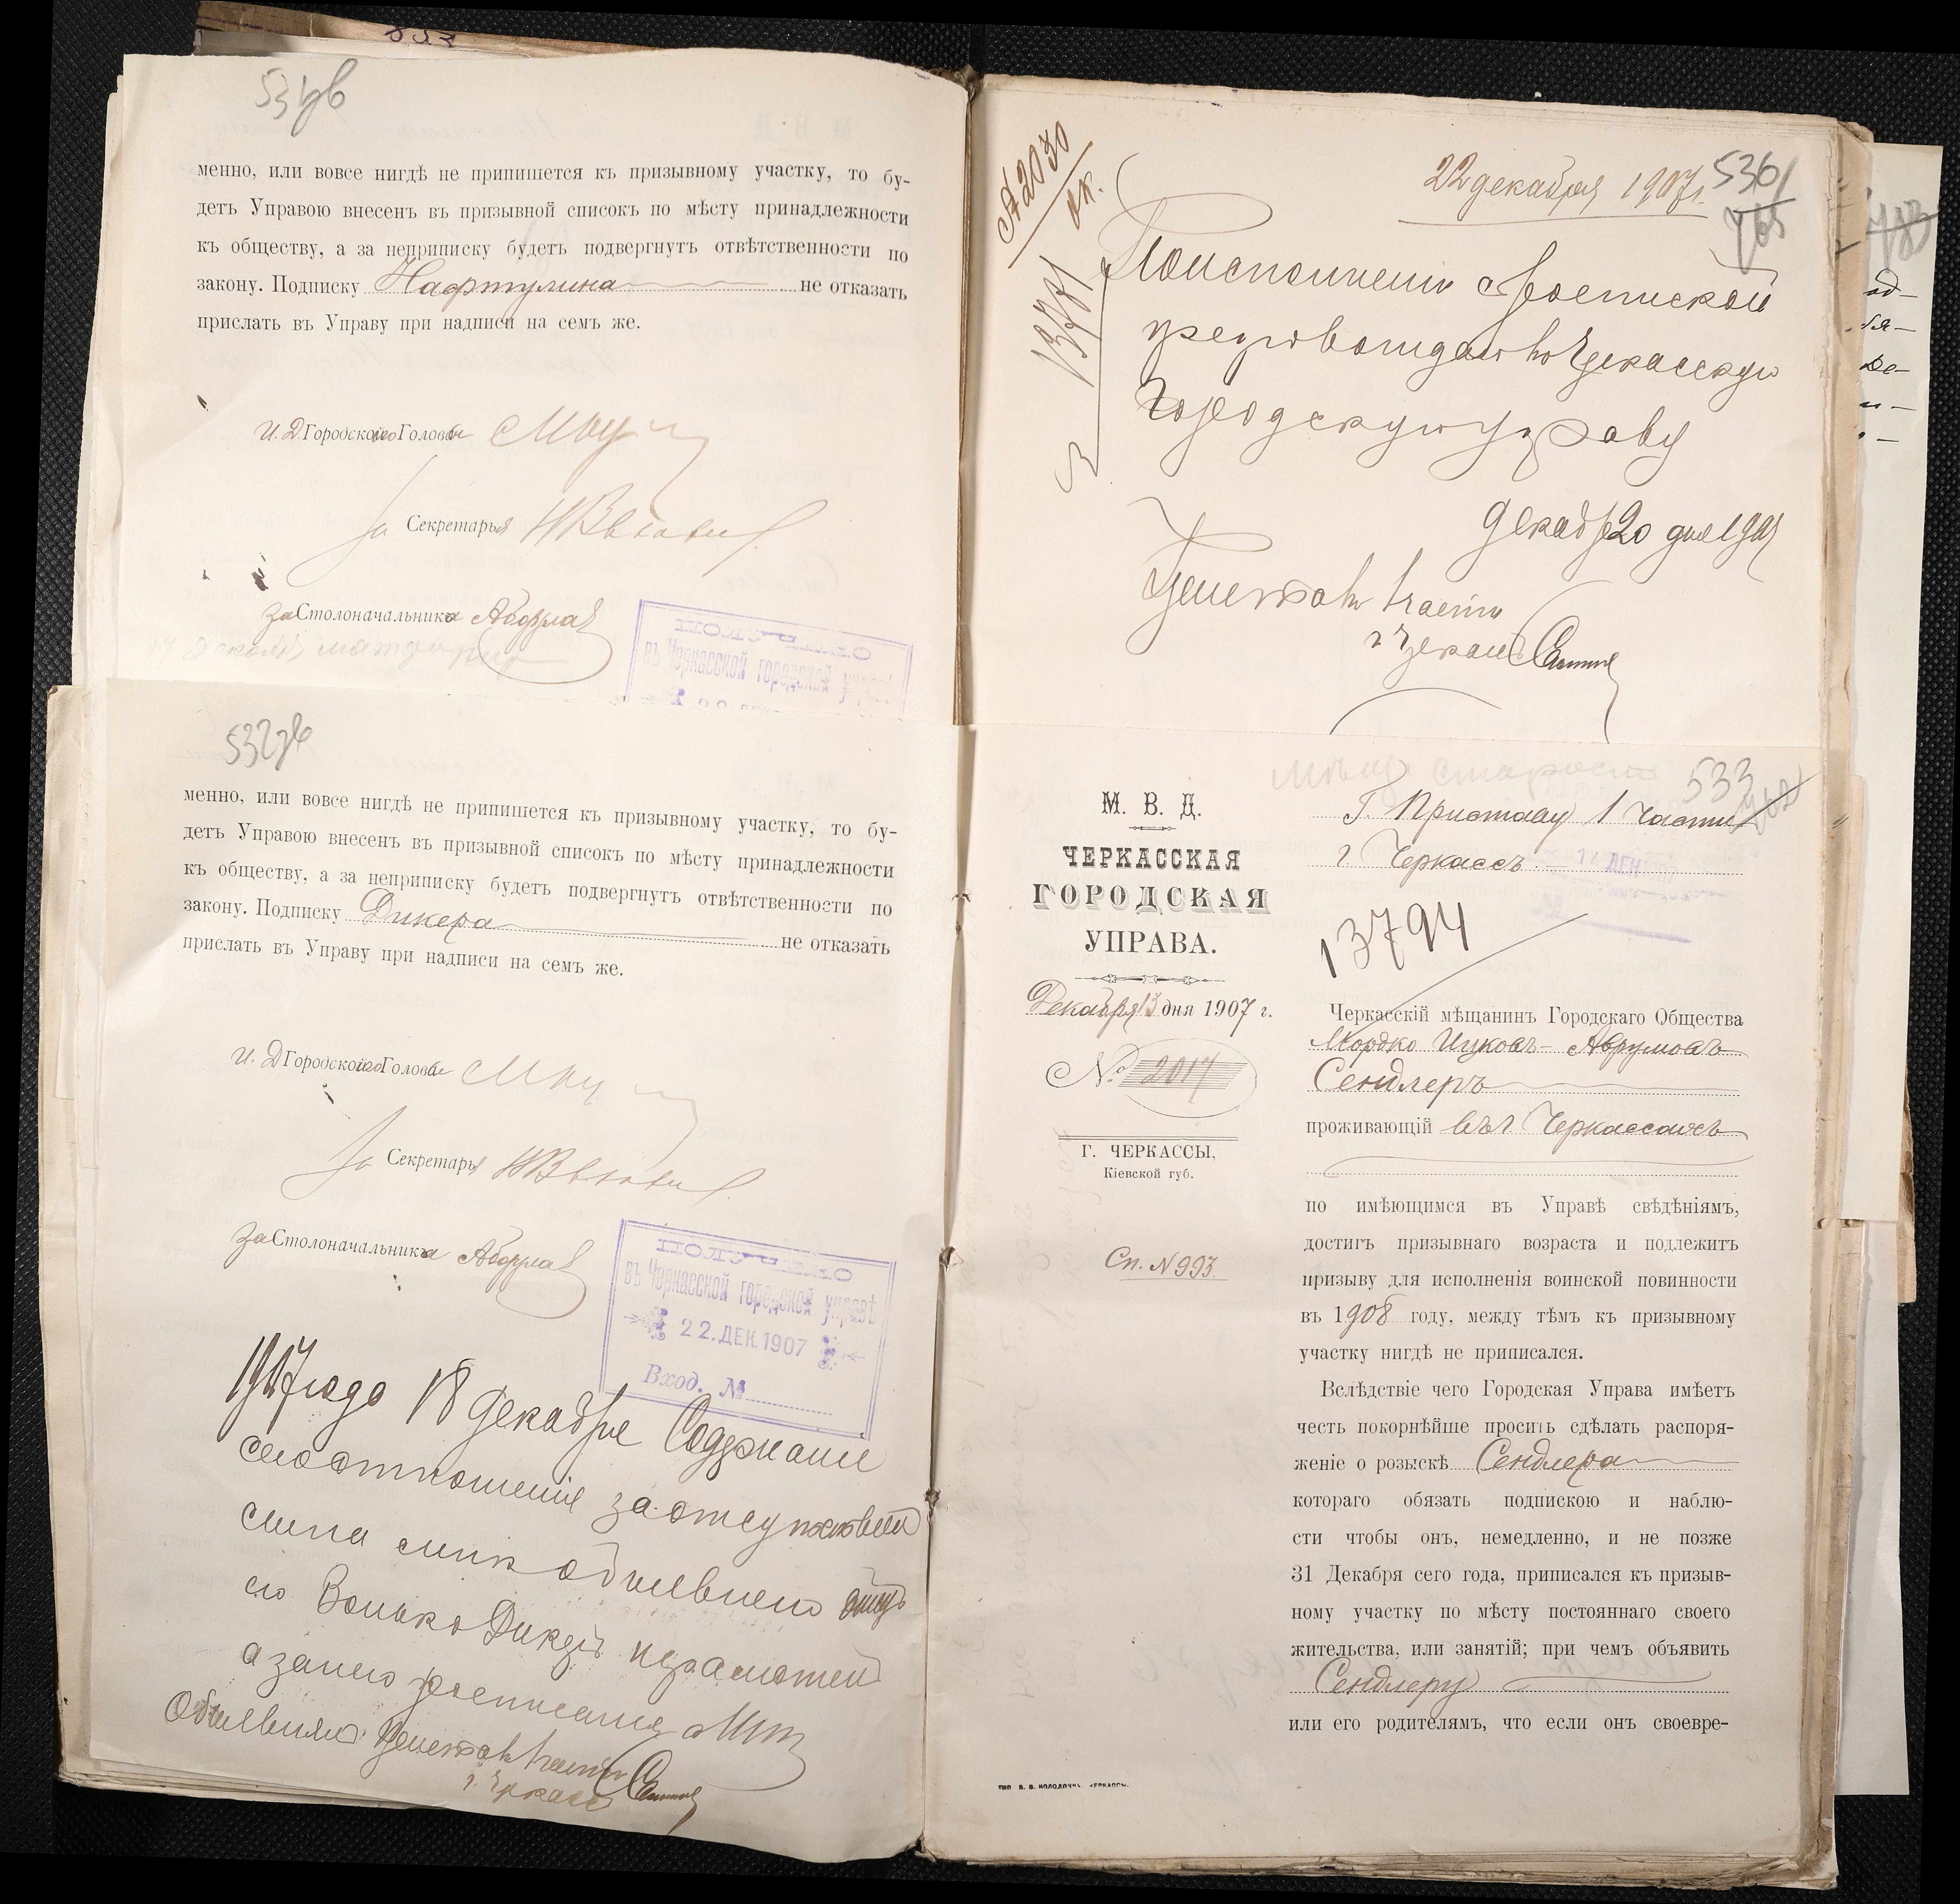 531 зв
менно, или вовсе нигдѣ не припишется къ призывному участку, то бу-
детъ Управою внесенъ въ призывной списокъ по мѣсту принадлежности
къ обществу, а за неприписку будетъ подвергнутъ отвѣтственности по
закону. Подписку Нафтулина не отказать
прислать въ Управу при надписи на семъ же.
И. Д. Городского Головы
За Секретаря
За Столоначальника
ПОЛУЧЕНО
въ Черкасской городской управѣ
532 зв
менно, или вовсе нигдѣ не припишется къ призывному участку, то бу-
детъ Управою внесенъ въ призывной списокъ по мѣсту принадлежности
къ обществу, а за неприписку будетъ подвергнутъ отвѣтственности по
закону. Подписку Дикера не отказать
прислать въ Управу при надписи на семъ же.
И. Д. Городского Головы
За Секретаря
За Столоначальника
ПОЛУЧЕНО
въ Черкасской городской управѣ
22. ДЕК 1907
Вход. №
1907 года 18 декабре
сего отношенія за отсутствіем
сына мне объявлено отцу
его Волько Дикеръ неграмотен
а занего росписался
Объявил
г. Черкасс
22 декабря 1907 г.
536
2030
13781
По исполнении с роспиской
препровождаю в Черкасскую
Городскую управу
Декабр 20 дня 1907
части
533
М. В. Д.
ЧЕРКАССКАЯ
ГОРОДСКАЯ
УПРАВА.
Декабря 13 дня 1907 г.
№ 2017
Г. ЧЕРКАССЫ,
Кіевской губ.
Сп. № 993.
Мѣщ старосто
Г. Приставу 1 части
г. Черкассъ
13794
Черкасскій мѣщанинъ Городскаго Общества
Мордко Ицковъ-Аврумовъ
Сендлеръ
проживающій въ г Черкассахъ
по имѣющимся въ Управѣ свѣдѣніямъ,
достигъ призывнаго возраста и подлежитъ
призыву для исполненія воинской повинности
въ 1908 году, между тѣмъ къ призывному
участку нигдѣ не приписался.
Вслѣдствіе чего Городская Управа имѣетъ
честь покорнѣйше просить сдѣлать распоря-
женіе о розыскѣ Сендлера
котораго обязать подпискою и наблю-
сти чтобы онъ, немедленно, и не позже
31 Декабря сего года, приписался къ призыв-
ному участку по мѣсту постояннаго своего
жительства, или занятій; при чемъ объявить
Сендлеру
или его родителямъ, что если онъ своевре-